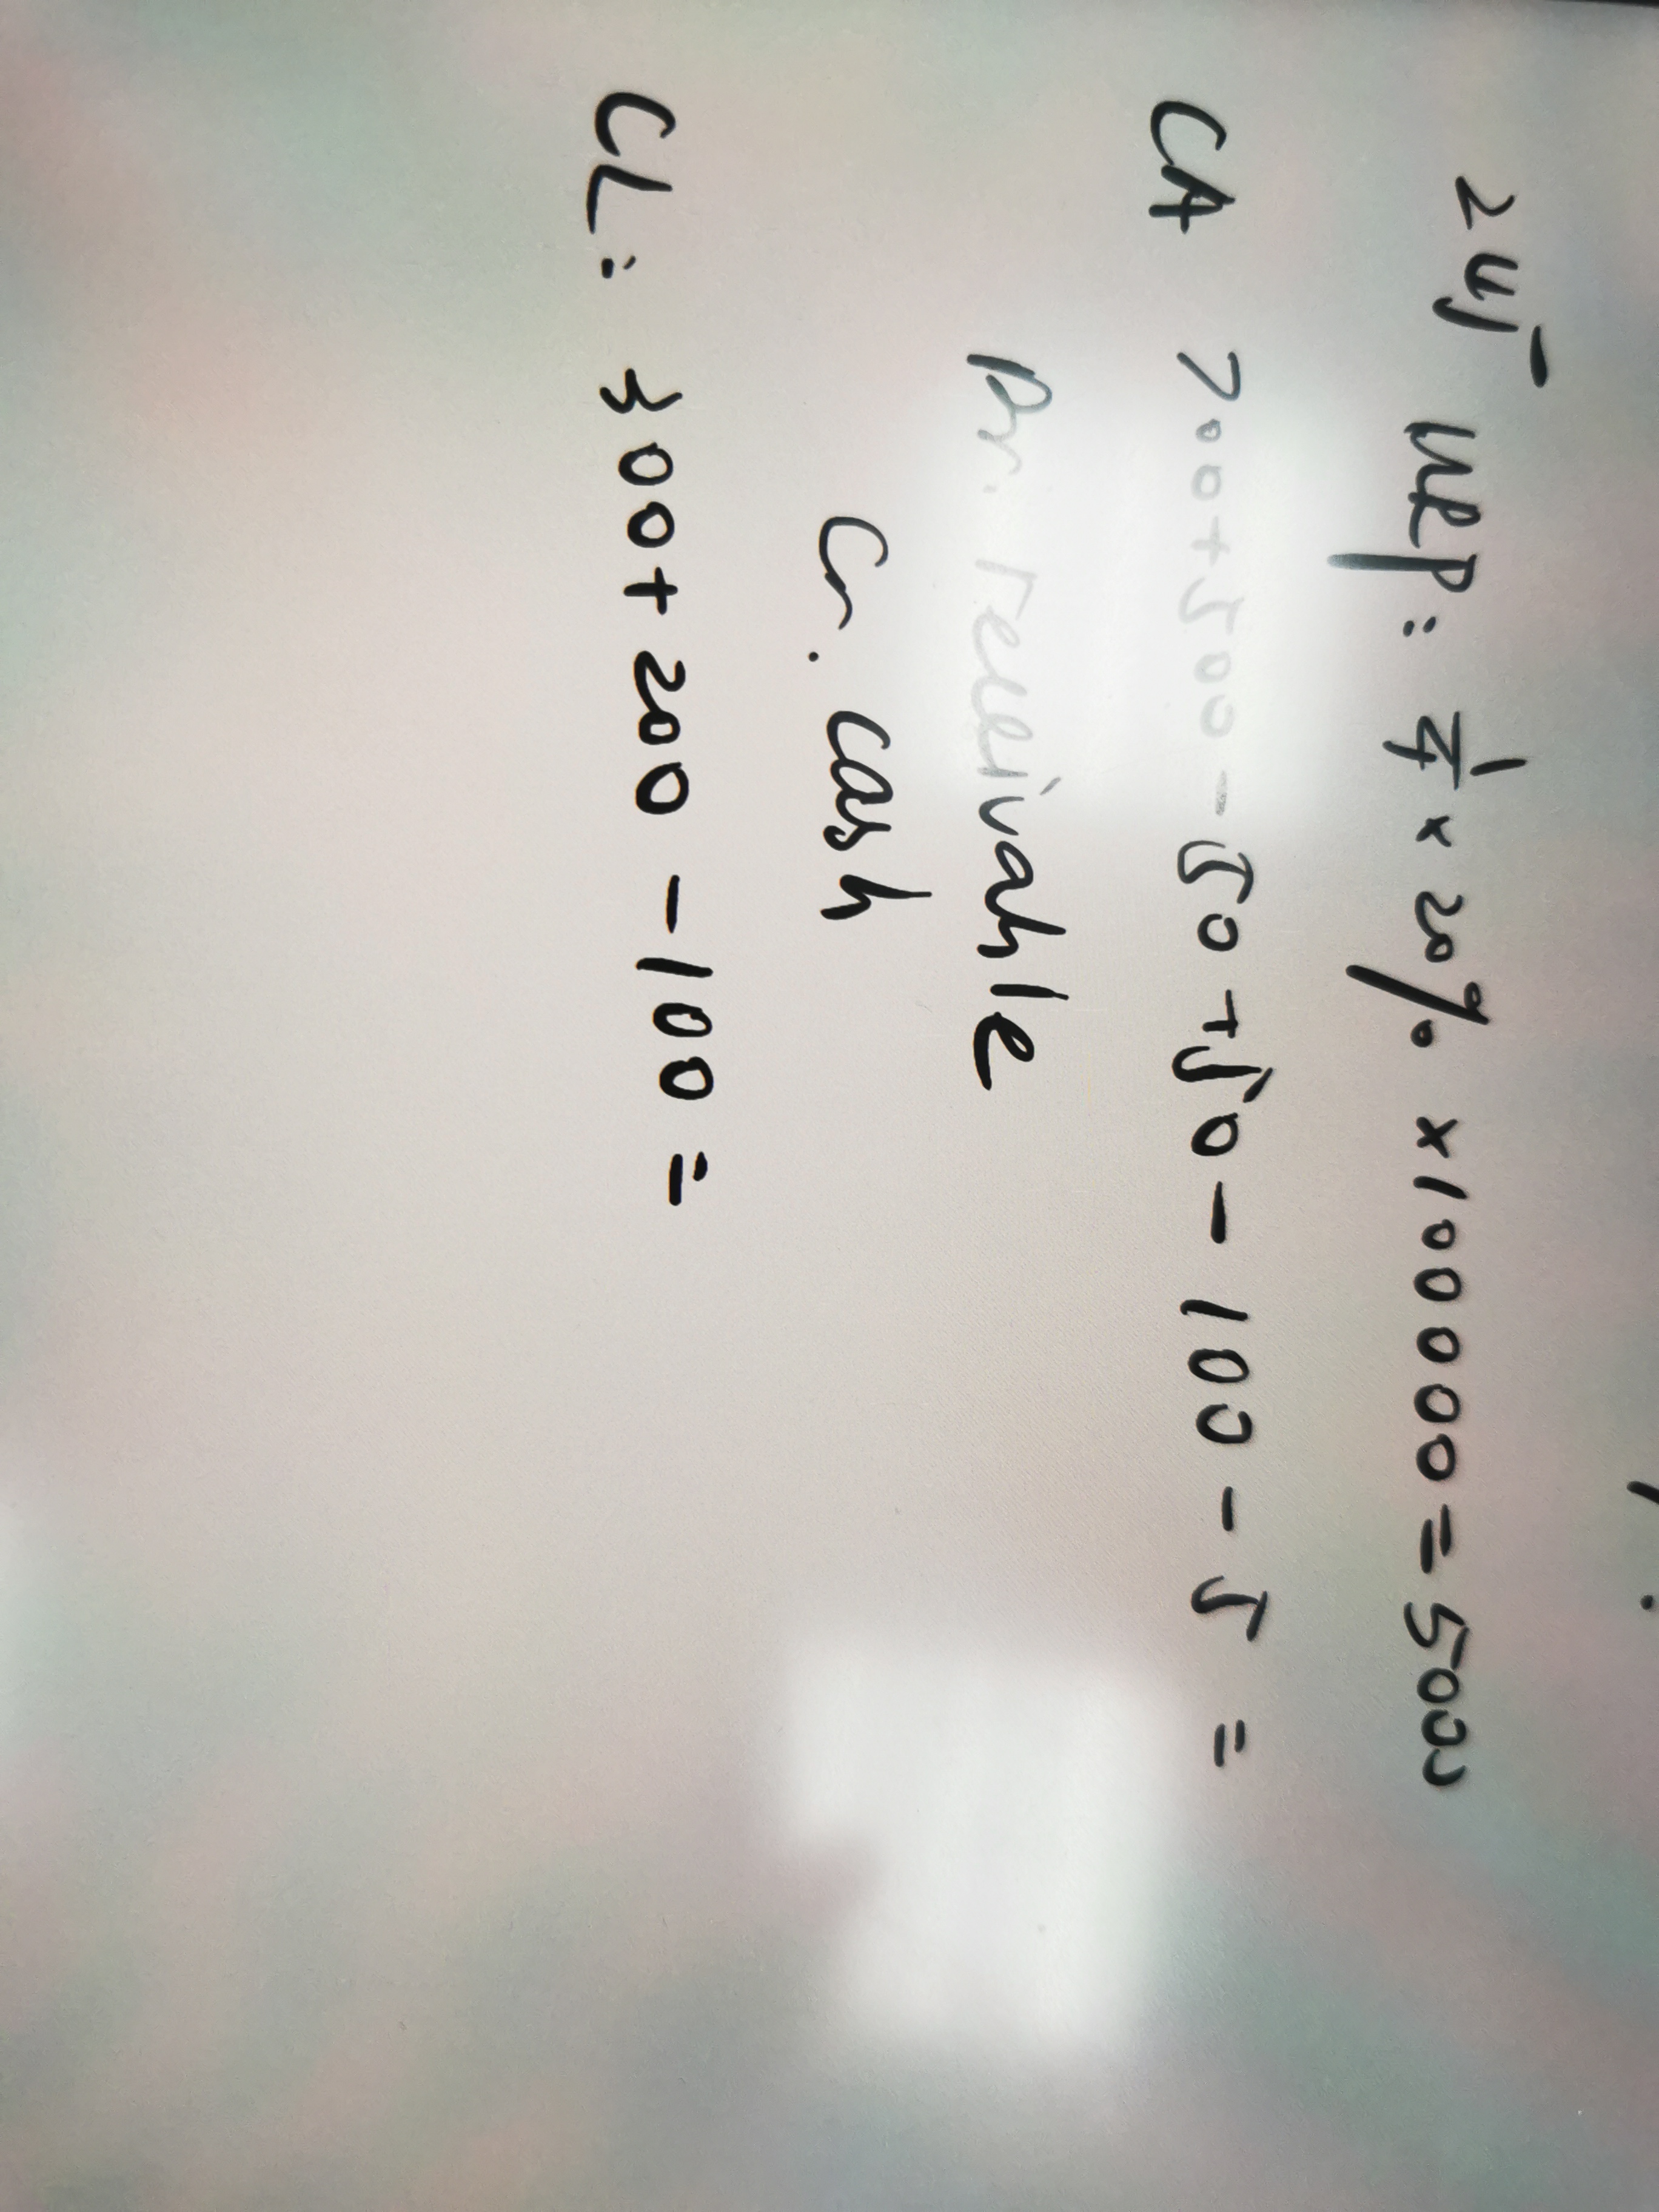 245
URP: 1/4 × 20% × 100000 = 5000
CA 700 + 500 - 50 + 50 - 100 - 5 =
Dr. receivable
Cr. cash
CL: 300 + 200 - 100 =